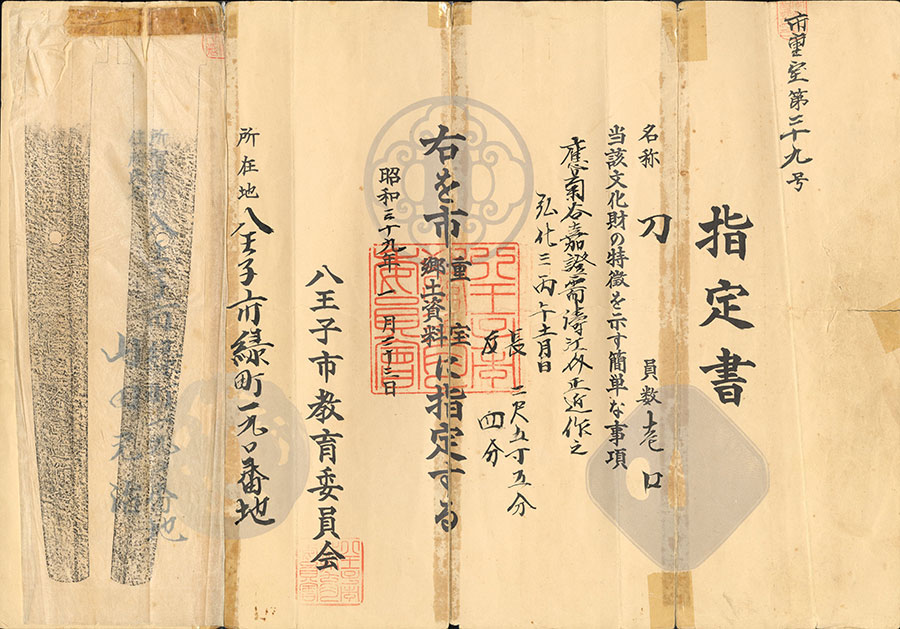 市重宝第三十九号
指定書
名称　刀　員数　壱口
当該文化財の特徴を示す簡単な事項
應菊谷嘉證需濤江介正近作之
弘化三丙午十一月日
長　二尺五寸五分
反　四分
右を市重宝郷土資料に指定する
昭和三十九年一月二十三日
八王子市教育委員会
所在地　八王子市緑町一九〇番地